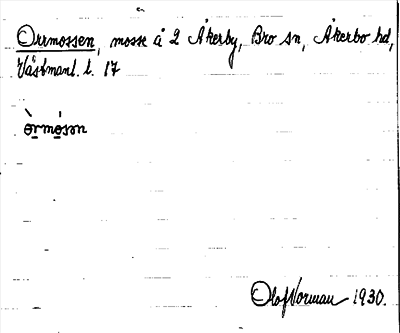 Orrmossen, mosse å 2 Åkerby, Bro sn, Åkerbo hd,
Västmanl. l. 17
òrmósən
Olof Norman 1930.